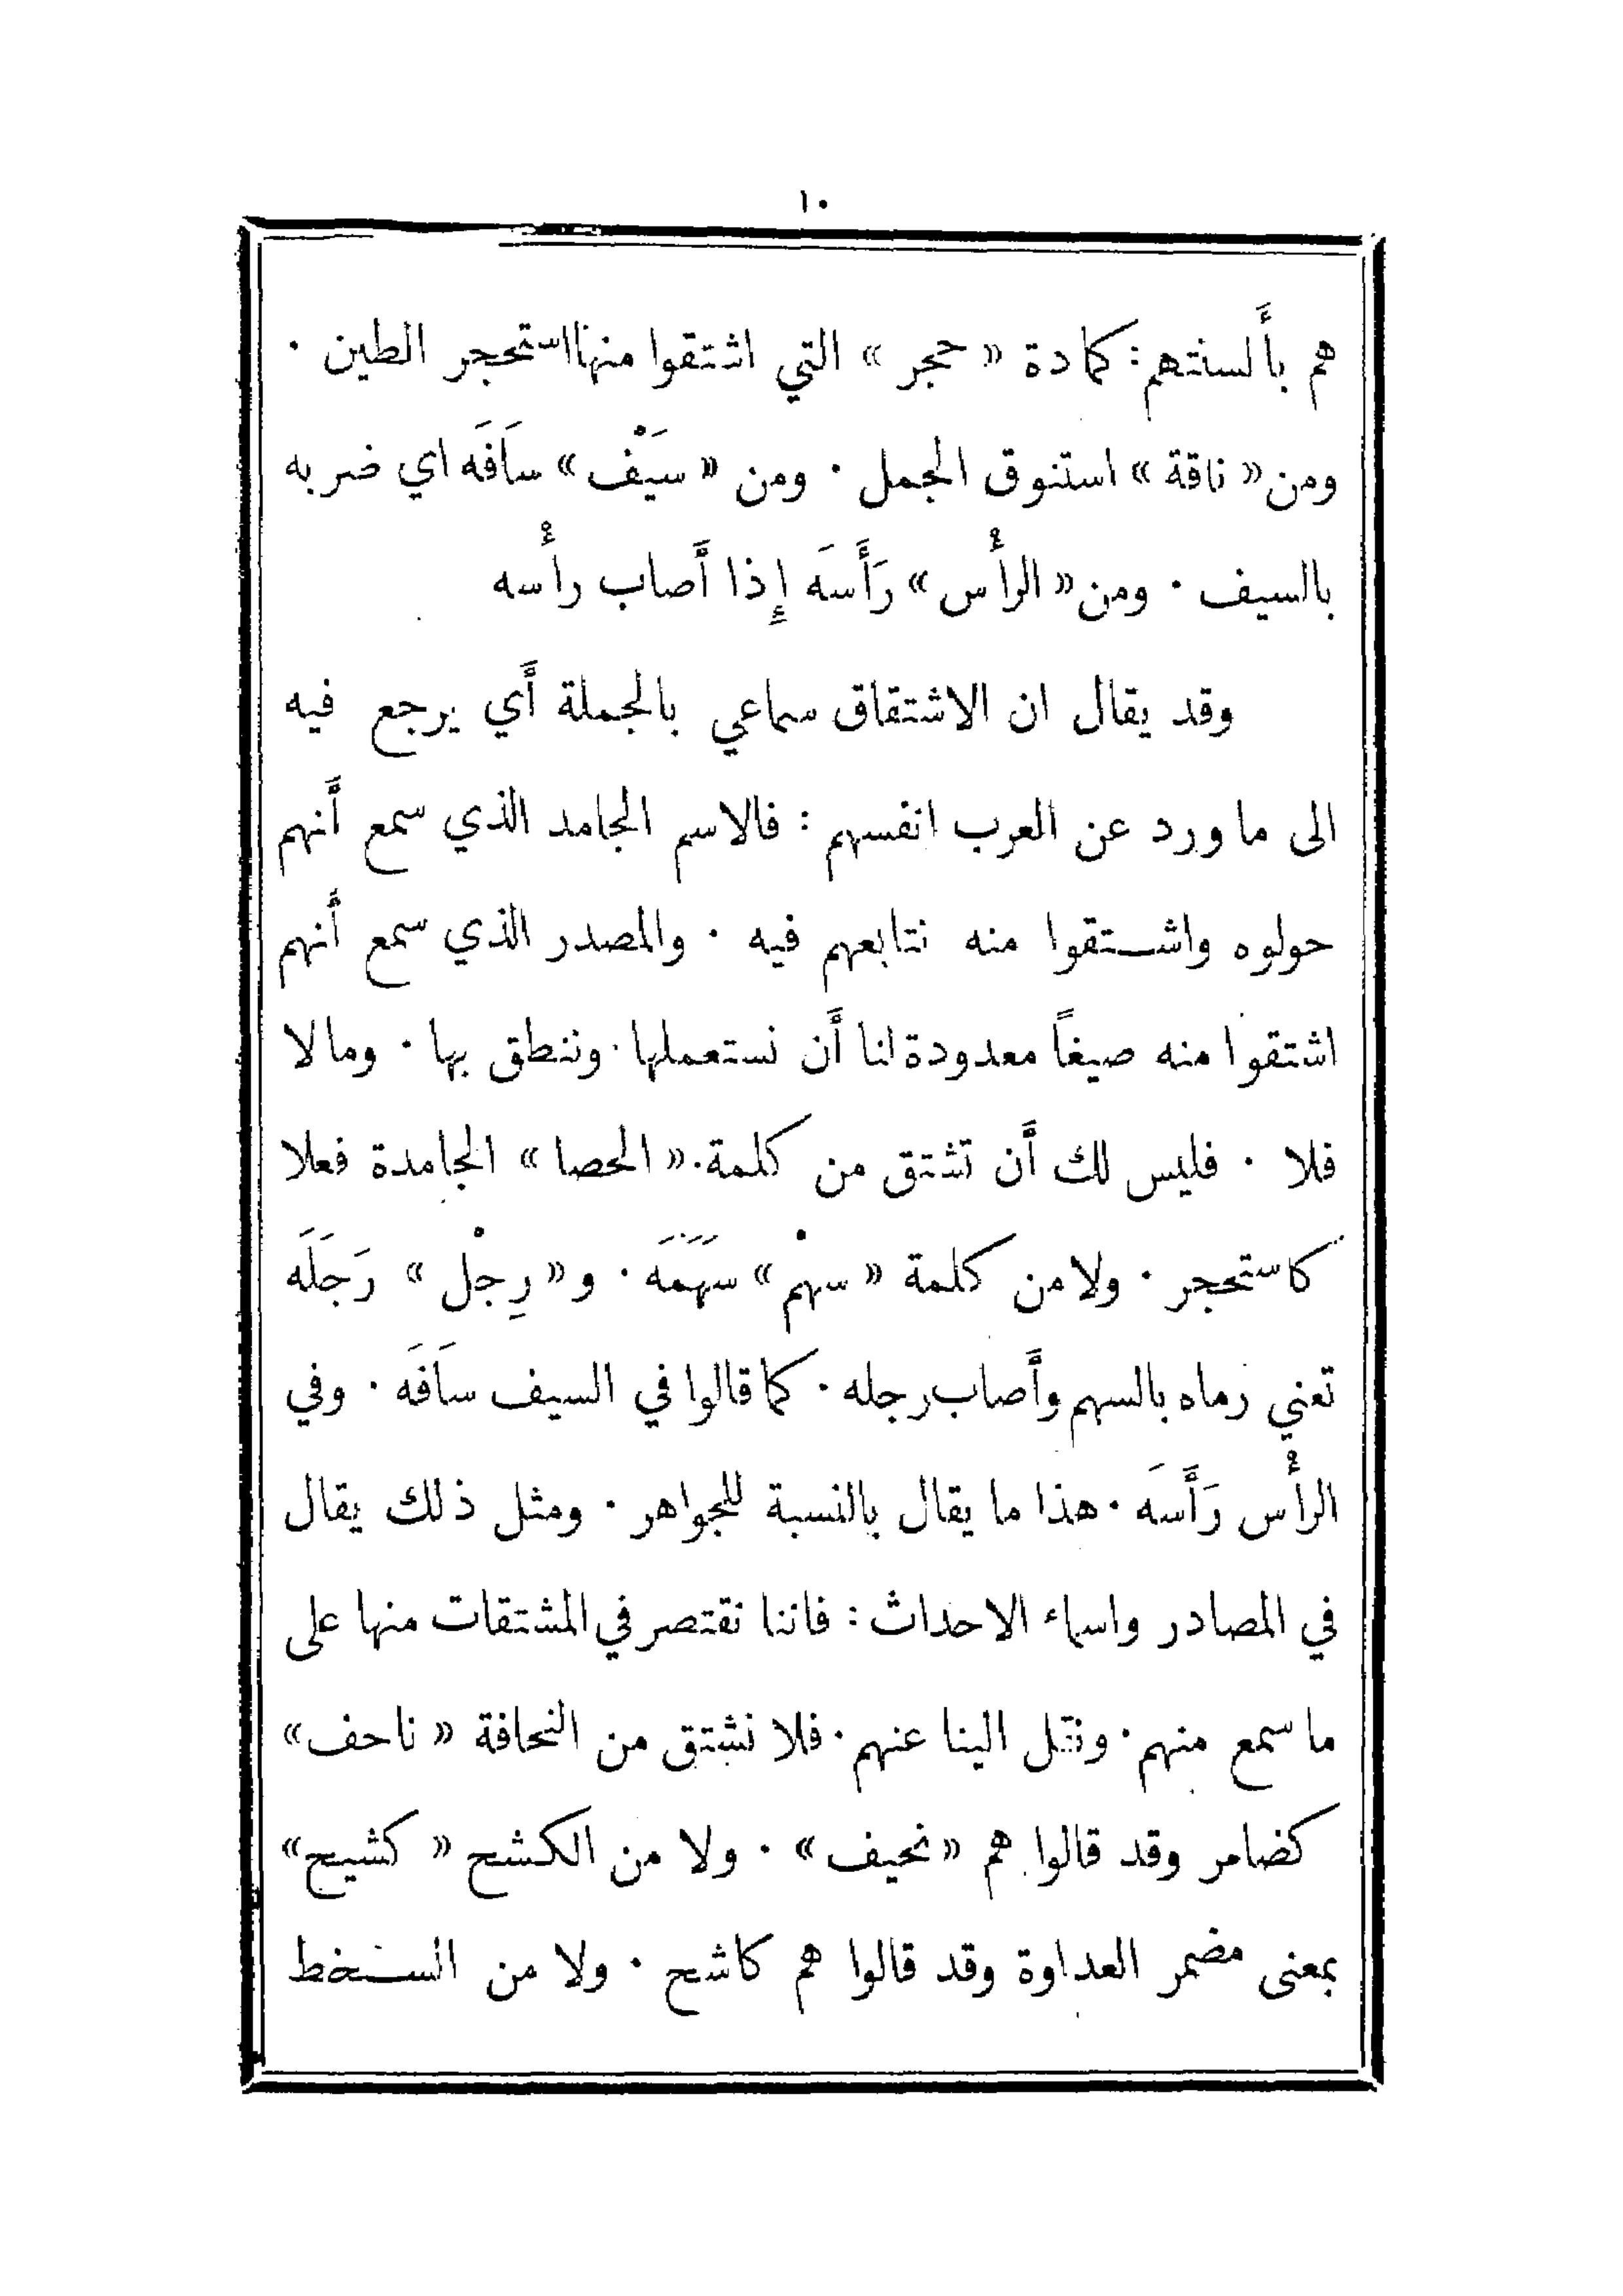 ١٠
هم بأَلسنتهم: كمادة « حجر » التي اشتقوا منها استحجر الطين ٠
ومن « ناقة » استنوق الجمل ٠ ومن « سَيْف » سَافَه اي ضربه
بالسيف ٠ ومن « الرأْس » رَأَسَه إِذا أَصاب رأْسه
وقد يقال ان الاشتقاق سماعي بالجملة أَي يرجع فيه
الى ما ورد عن العرب انفسهم : فالاسم الجامد الذي سمع أَنهم
حولوه واشـتقوا منه نتابعهم فيه ٠ والمصدر الذي سمع أَنهم
اشتقوا منه صيغاً معدودة لنا أَن نستعملها ٠ وننطق بها ٠ وما لا
فلا ٠ فليس لك أَن تشتق من كلمة « الحصا » الجامدة فعلا
كاستحجر ٠ ولا من كلمة « سهْم » سَهَمَه ٠ و « رِجْل » رَجَلَه
تعني رماه بالسهم وأَصاب رجله ٠ كما قالوا في السيف سَافَه ٠ وفي
الرأْس رَأَسَه ٠ هذا ما يقال بالنسبة للجواهر ٠ ومثل ذلك يقال
في المصادر واسماء الاحداث : فاننا نقتصر في المشتقات منها على
ما سمع منهم ٠ ونقل الينا عنهم ٠ فلا نشتق من النحافة « ناحف »
كضامر وقد قالوا هم « نحيف » ٠ ولا من الكشح « كشيح »
بمعنى مضمر العداوة وقد قالوا هم كاشح ٠ ولا من السـخط